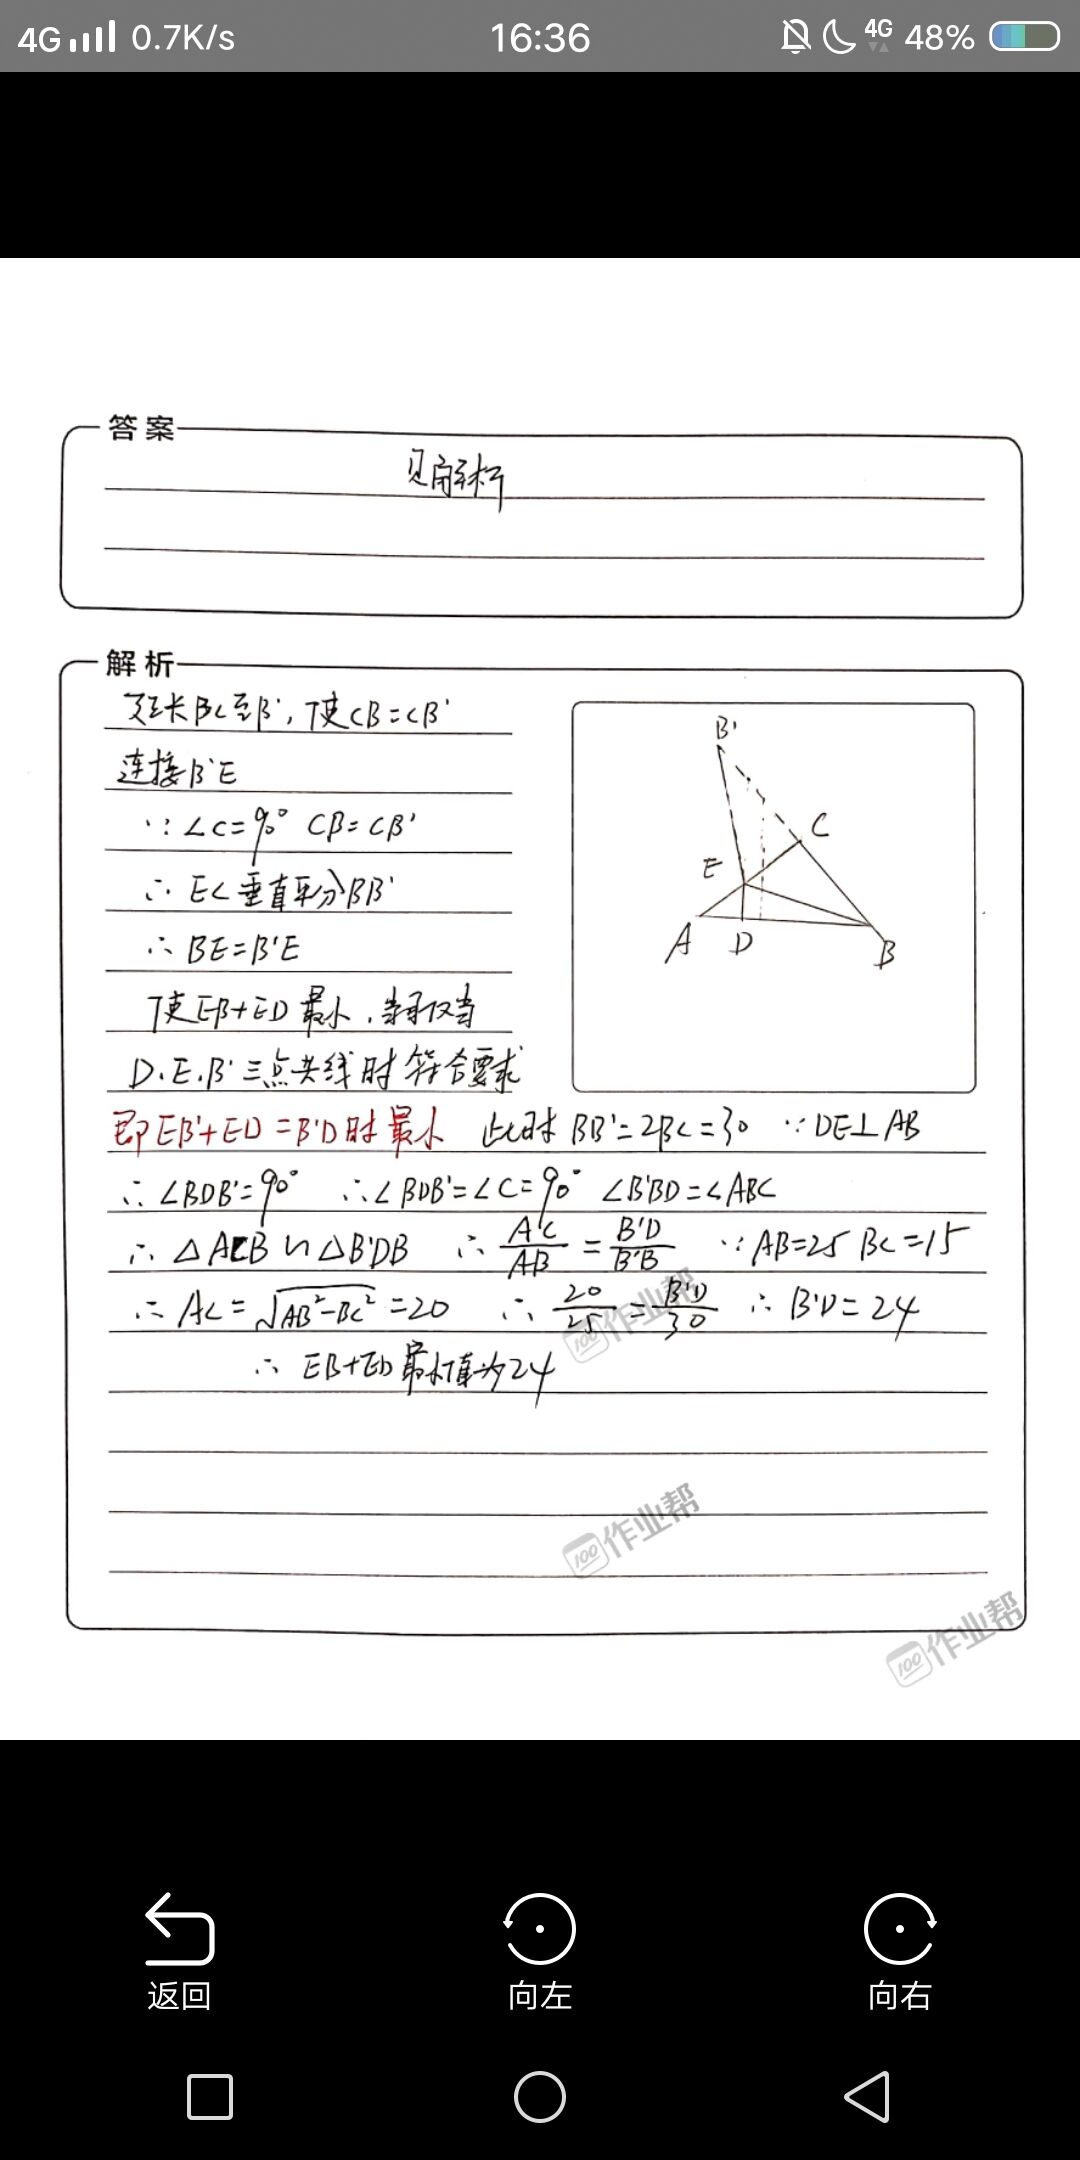 4G 0.7K/s 16:36 4G 48%
答案
见解析
解析
延长BC至B',使CB=CB'
连接B'E
∵∠C=90° CB=CB'
∴EC垂直平分BB'
∴BE=B'E
使EB+ED最小,当且仅当
D、E、B'三点共线时符合要求
B'
C
E
A
D
B
即EB'+ED=B'D时最小 此时BB'=2BC=30 ∵DE⊥AB
∴∠BDB'=90° ∴∠BDB'=∠C=90° ∠B'BD=∠ABC
∴△ACB∽△B'DB ∴AC/AB=B'D/B'B ∵AB=25 BC=15
∴AC=√AB²-BC²=20 ∴20/25=B'D/30 ∴B'D=24
∴EB+ED最小值为24
100作业帮
100作业帮
100作业帮
返回
向左
向右